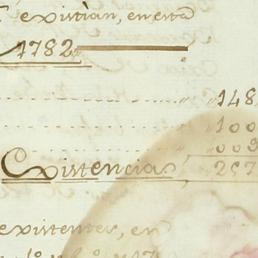 existian, en esta
1782
148
100
009
Existencias, 257
existentes, en